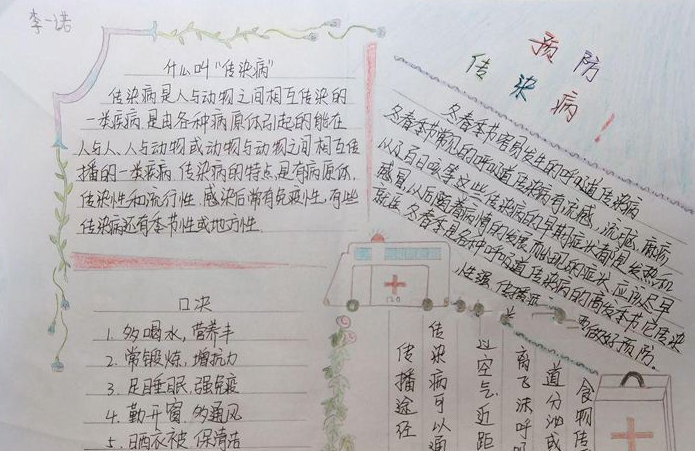 李一诺
预防
传染病！
什么叫“传染病”
传染病是人与动物之间相互传染的
一类疾病,是由各种病原体引起的能在
人与人、人与动物或动物与动物之间相互传
播的一类疾病.传染病的特点是有病原体,
传染性和流行性,感染后常有免疫性,有些
传染病还有季节性或地方性.
冬春季节容易发生的呼吸道传染病
冬春季节常见的呼吸道传染病有流感,流脑,麻疹
以及百日咳等这些传染病的早期症状都是发热和
感冒,以后随着病情的发展而出现不同症状,应该尽早
就医.冬春季是各种呼吸道传染病的高发季节,它传染
性强,传播
要做好预防.
口决
1. 多喝水,营养丰
2. 常锻炼,增抗力
3. 足睡眠,强免疫
4. 勤开窗,多通风
5. 晒衣被,保清洁
120
传播途径
传染病可以通
过空气,近距
离飞沫呼吸
道分泌或
食物传